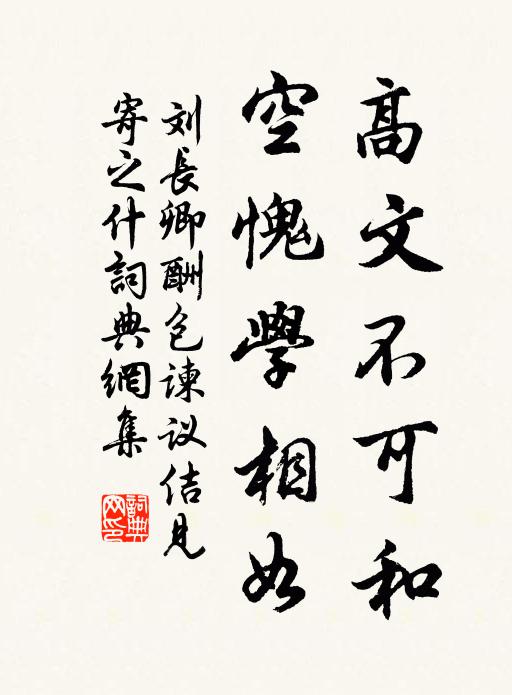 高文不可和
空愧學相如
刘長卿酬包谏议佶見
寄之什詞典網集
詞典網印